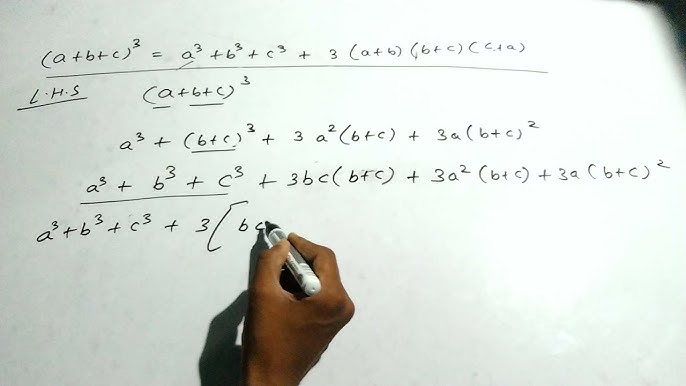 (a+b+c)³ = a³ + b³ + c³ + 3 (a+b) (b+c) (c+a)
L.H.S (a+b+c)³
a³ + (b+c)³ + 3 a²(b+c) + 3a(b+c)²
a³ + b³ + c³ + 3bc(b+c) + 3a²(b+c) + 3a(b+c)²
a³+b³+c³ + 3 [ bc